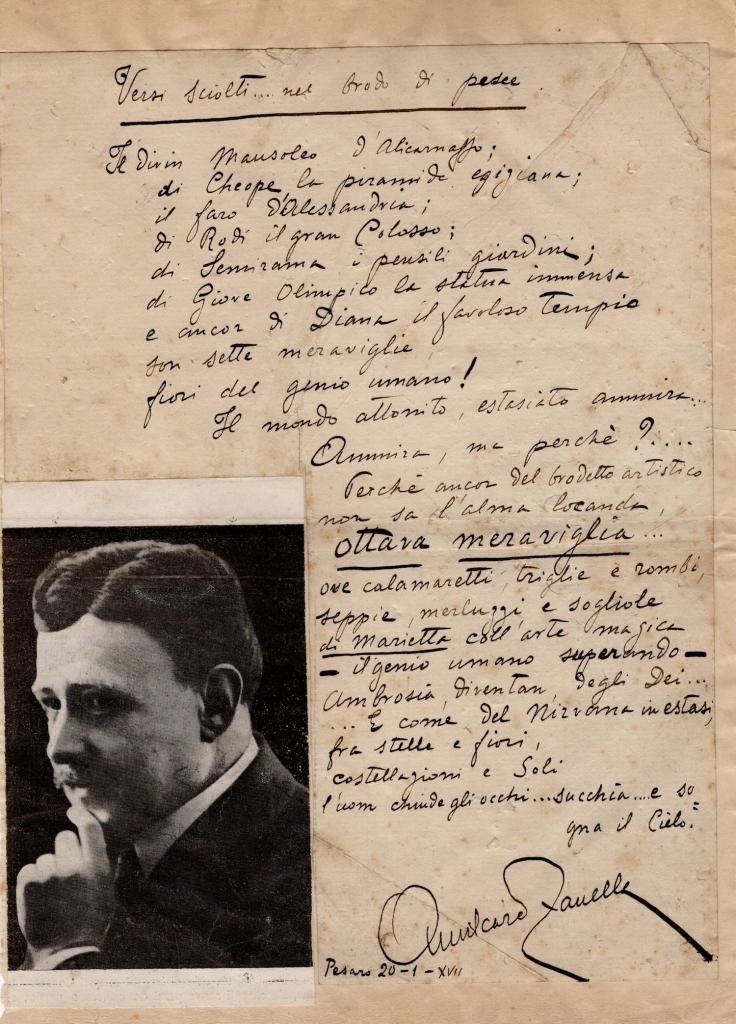 Versi sciolti.... nel brodo di pesce
Il divin Mausoleo d'Alicarnasso;
di Cheope la piramide egiziana;
il faro d'Alessandria;
di Rodi il gran Colosso;
di Semirama i pensili giardini;
di Giove Olimpico la statua immensa
e ancor di Diana il favoloso Tempio
son sette meraviglie,
fiori del genio umano!
Il mondo attonito, estasiato ammira...
Ammira, ma perchè?....
Perchè ancor del brodetto artistico
non sa l'alma locanda,
ottava meraviglia...
ove calamaretti, triglie e rombi,
seppie, merluzzi e sogliole
di Marietta coll'arte magica
— il genio umano superando —
Ambrosia, diventan, degli Dei...
... E come del Nirvana in estasi,
fra stelle e fiori,
costellazioni e Soli
l'uom chiude gli occhi...succhia....e so
gna il Cielo."
Amilcare Zanella
Pesaro 20-1-XVII